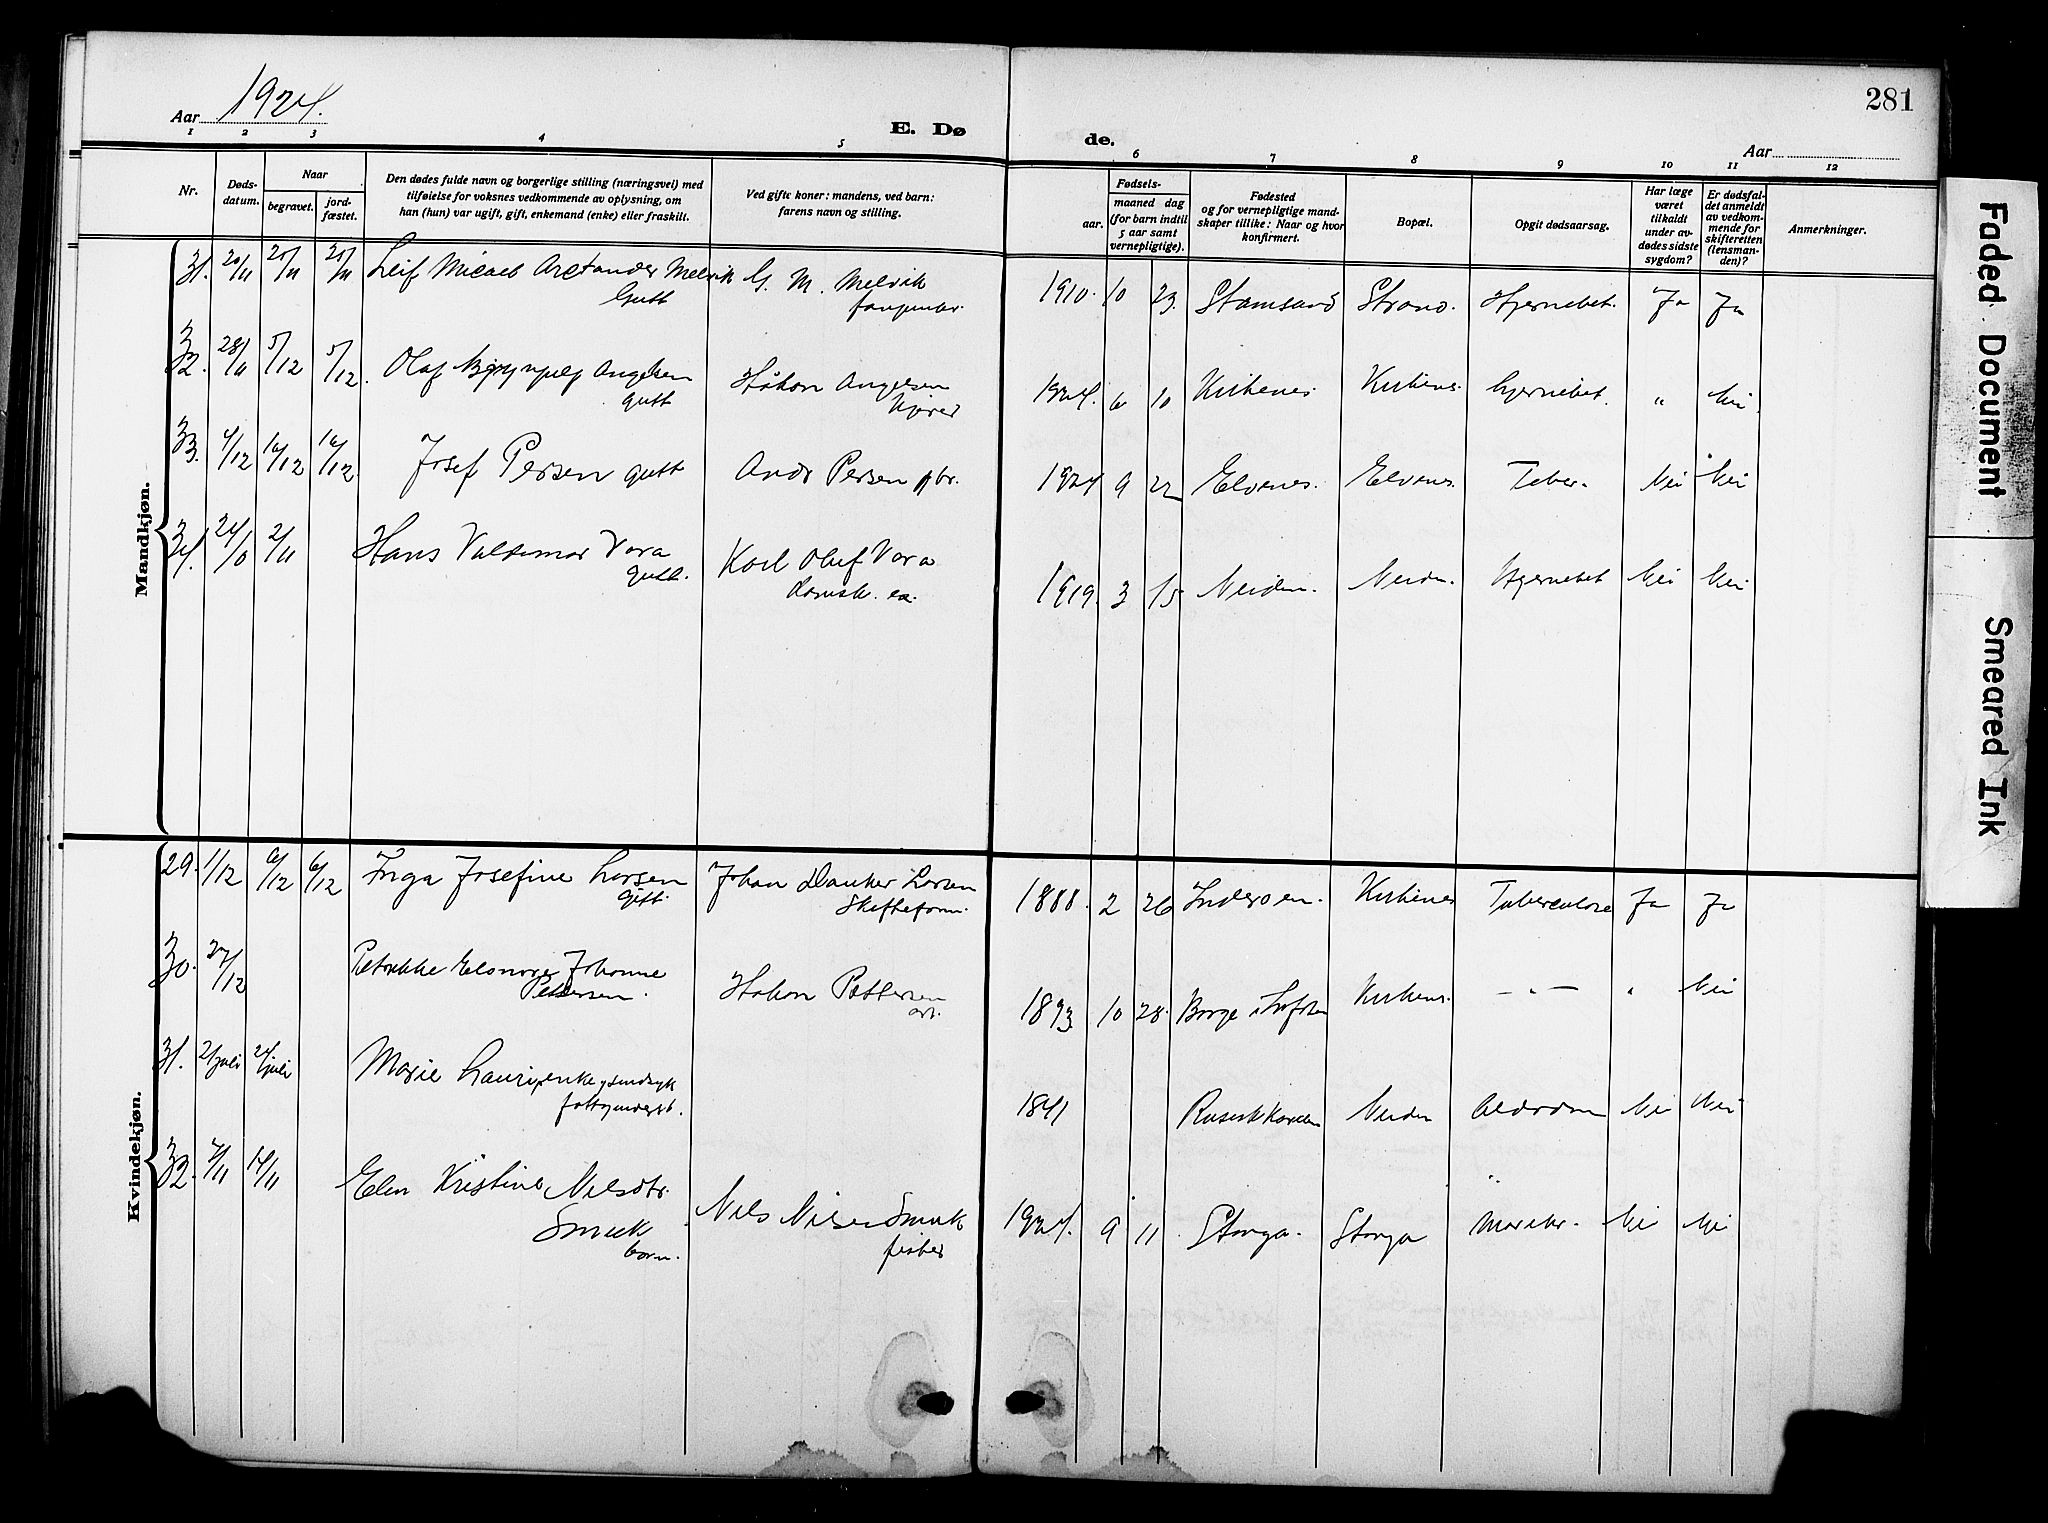 281
Aar 1924.
E. Døde.
Aar
1 2 3 4 5 6 7 8 9 10 11 12
Nr.
Dødsdatum.
Naar
begravet.
jordfæstet.
Den dødes fulde navn og borgerlige stilling (næringsvei) med
tilføielse for voksnes vedkommende av oplysning, om
han (hun) var ugift, gift, enkemand (enke) eller fraskilt.
Ved gifte koner: mandens, ved barn:
farens navn og stilling.
Fødsels-
aar.
maaned dag
(for barn indtil
5 aar samt
vernepligtige).
Fødested
og for vernepligtige mand-
skaper tillike: Naar og hvor
konfirmert.
Bopæl.
Opgit dødsaarsag.
Har læge
været
tilkaldt
under av-
dødes sidste
sygdom?
Er dødsfal-
det anmeldt
av vedkom-
mende for
skifteretten
(lensman-
den)?
Anmerkninger.
Mandkjøn.
31. 20/11 25/11 25/11 Leif Mikael Melvik G. M. Melvik 1910. 10 23. Stamsund Strand. Hjernebet. Ja Ja
Gutt
32. 28/11 5/12 5/12. Olaf Angelsen Håkon Angelsen 1924. 6 10 Kirkenes Kirkenes. hjernebet. " Nei.
gutt
33. 4/12 16/12 16/12 Josef Persen gutt Andr Persen gbr. 1924 9 22 Elvenes. Elvenes. Tuber. Nei Nei
34. 24/10 2/11 Hans Valdemar Vara Karl Oluf Vara 1919. 3 15 Neiden. Neiden. Hjernebet Nei Nei
gutt.
Kvindekjøn.
29. 1/12 6/12 6/12 Inga Josefine Larsen Johan Danker Larsen 1888. 2 26 Inderøen. Kirkenes Tuberculose Ja Ja
Gift. Skifteform.
30. 27/12 Petrikke Elonore Johanne Håkon Pettersen 1893 10 28. Borge i Lofoten Kirkenes. — " — " Nei
Pettersen. arb.
31. 2/juli 24/juli Marie Lauri, enke, sindsyk 1841 Russisk Karelen Neiden Alderdom Nei Nei
fattigunderst.
32. 7/11 14/11 Elen Kristine Nilsdtr. Nils Nilsen Smuk 1924. 9 11 Stonga. Stonga Nei Nei
Smuk fisker
barn.
Faded Document
Smeared Ink